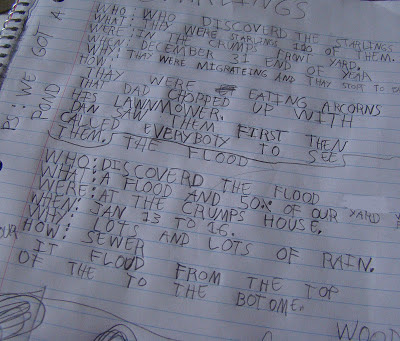 STARLINGS
WHO: WHO DISCOVERD THE STARLINGS
WHAT: WERE STARLING 100 OF THEM.
WERE: IN THE CRUMPS FRONT YARD.
WHEN: DECEMBER 31 END OF YEAR
HOW: THAY WERE MIGRATEING AND THAY STOP TO EA
THAY WERE EATING ARCORNS
THAT DAD CHOPPED UP WITH
HIS LAWNMOWER.
DAN SAW THEM FIRST THEN
CALLED EVERYBOTY TO SEE
THEM!
THE FLOOD
WHO: DISCOVERD THE FLOOD
WHAT: A FLOOD AND 50% OF OUR YARD
WERE: AT THE CRUMPS HOUSE.
WHEN: JAN 13 TO 16.
WHY: LOTS AND LOTS OF RAIN.
HOW: SEWER
IT FLOUD FROM THE TOP
OF THE TO THE BOTOME.
PS: WE GOT A
POND
OUR
WOOD